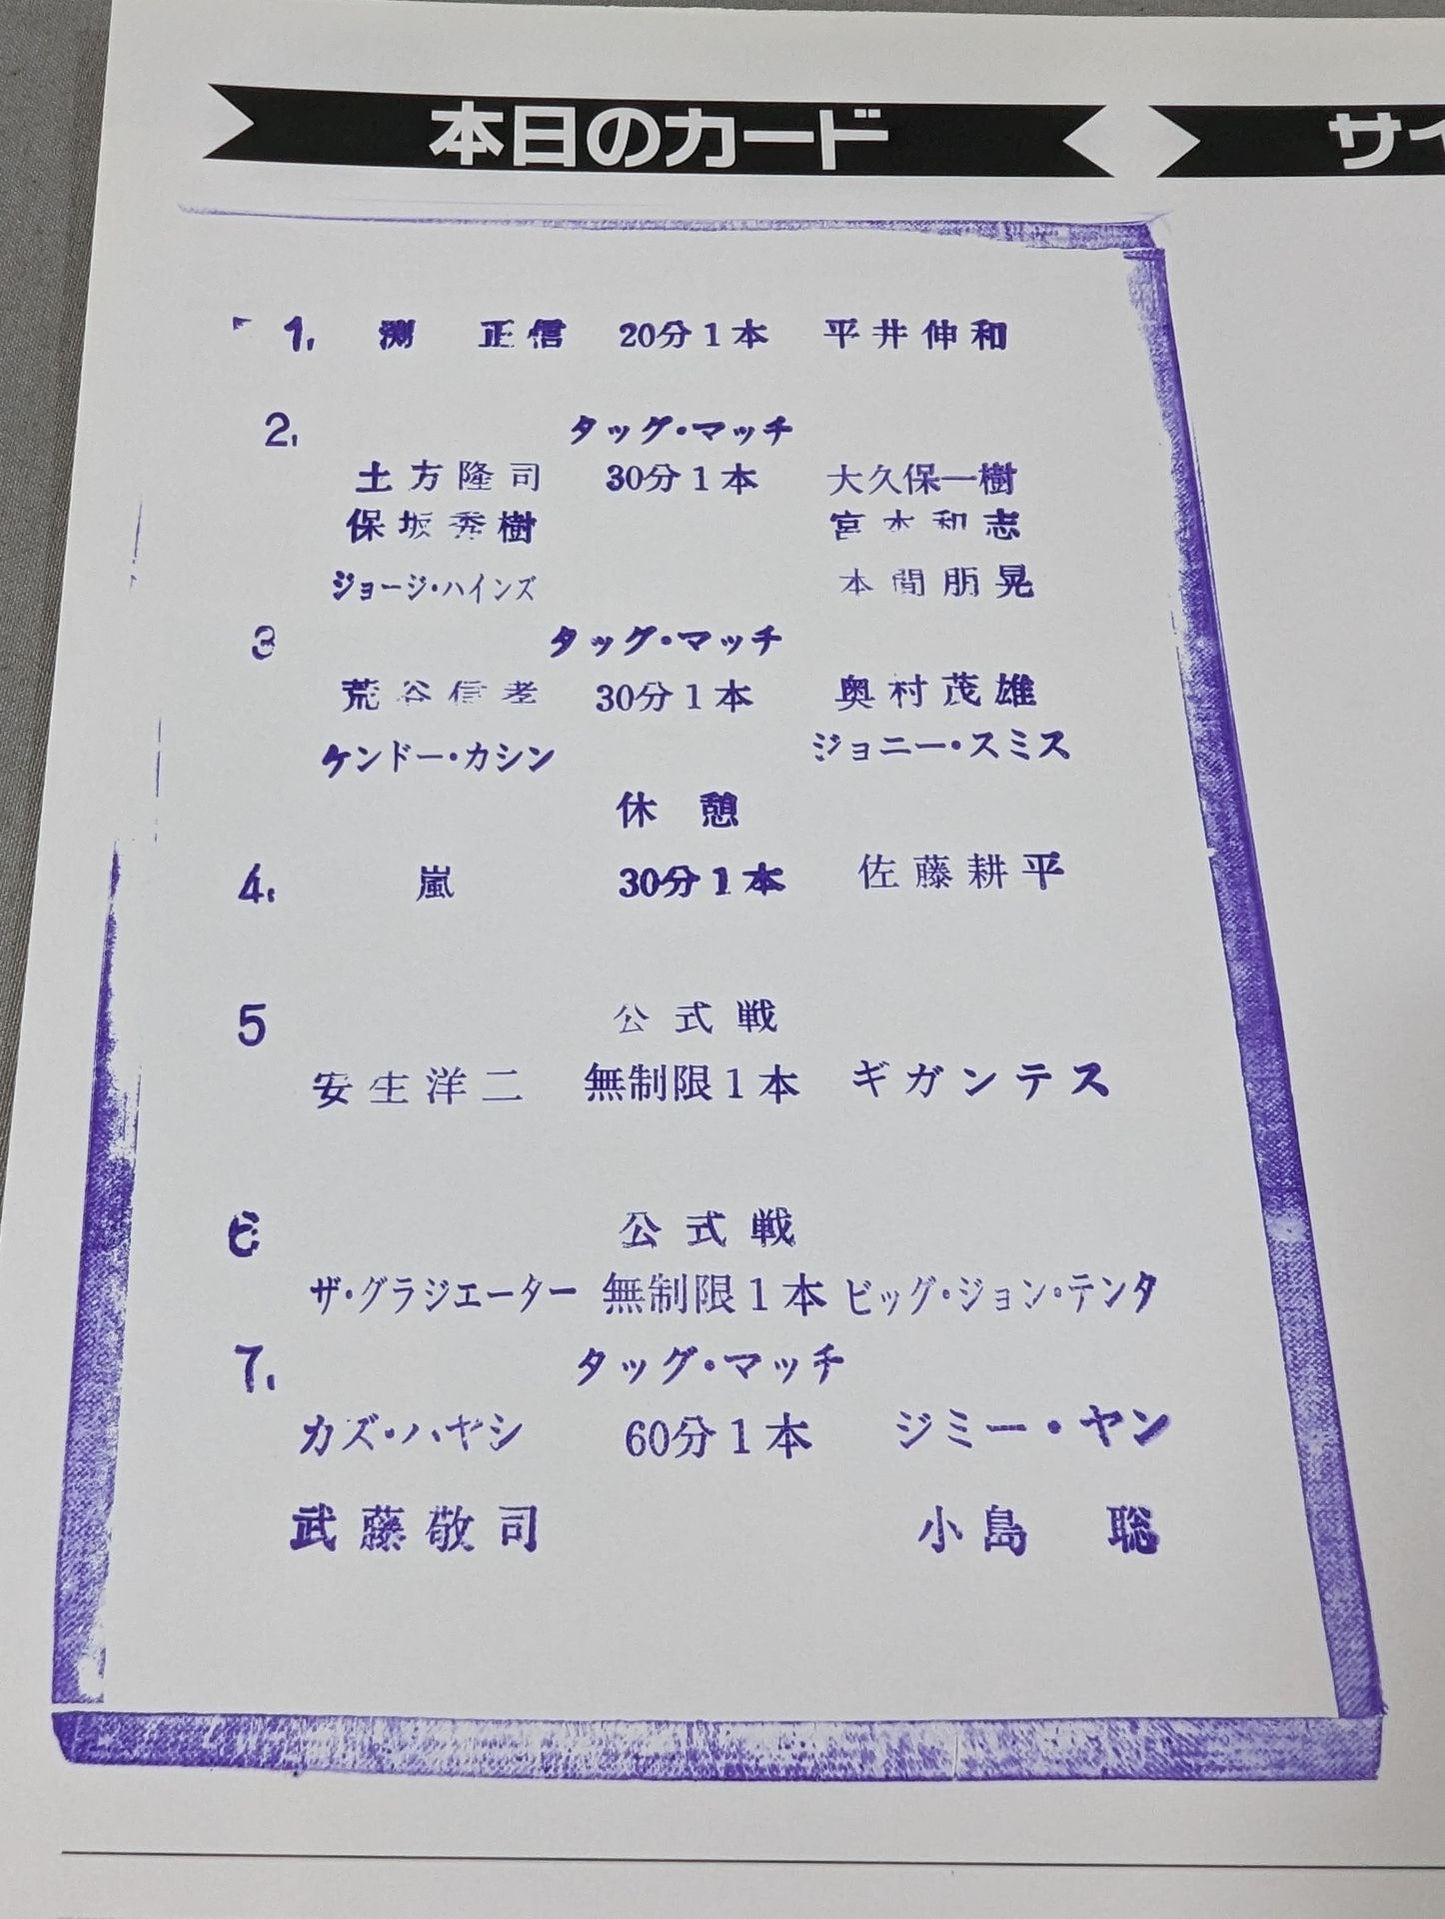 本日のカード
サイ
1. 渕 正信 20分1本 平井伸和
2. タッグ・マッチ
土方隆司 30分1本 大久保一樹
保坂秀樹 宮本和志
ジョージ・ハインズ 本間朋晃
3 タッグ・マッチ
荒谷信孝 30分1本 奥村茂雄
ケンドー・カシン ジョニー・スミス
休憩
4. 嵐 30分1本 佐藤耕平
5 公式戦
安生洋二 無制限1本 ギガンテス
6 公式戦
ザ・グラジエーター 無制限1本 ビッグ・ジョン・テンタ
7. タッグ・マッチ
カズ・ハヤシ 60分1本 ジミー・ヤン
武藤敬司 小島 聡